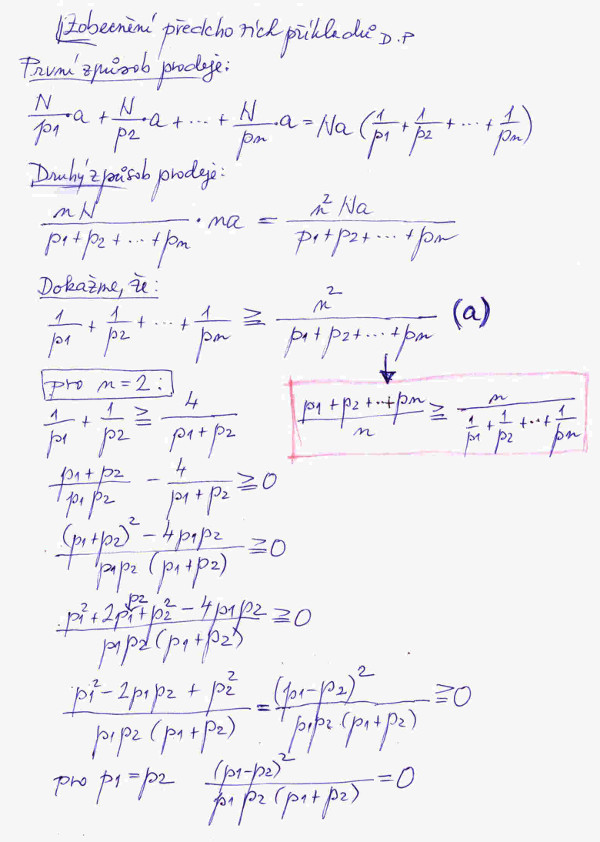 Zobecnění předchozích příkladů D.P
První způsob prodeje:
N/p1·a + N/p2·a + ··· + N/pn·a = Na (1/p1 + 1/p2 + ··· + 1/pn)
Druhý způsob prodeje:
nN/(p1+p2+ ··· +pn) · na = n² Na/(p1+p2+ ··· +pn)
Dokažme, že:
1/p1 + 1/p2 + ··· + 1/pn ≧ n²/(p1+p2+ ··· +pn) (a)
pro n=2:
1/p1 + 1/p2 ≧ 4/(p1+p2)
(p1+p2+ ··· +pn)/n ≧ n/(1/p1 + 1/p2 + ··· + 1/pn)
(p1+p2)/(p1p2) − 4/(p1+p2) ≧ 0
((p1+p2)² − 4p1p2)/(p1p2 (p1+p2)) ≧ 0
(p1² + 2p1p2 + p2² − 4p1p2)/(p1p2 (p1+p2)) ≧ 0
(p1² − 2p1p2 + p2²)/(p1p2 (p1+p2)) = (p1−p2)²/(p1p2·(p1+p2)) ≧ 0
pro p1=p2 (p1−p2)²/(p1p2 (p1+p2)) = 0